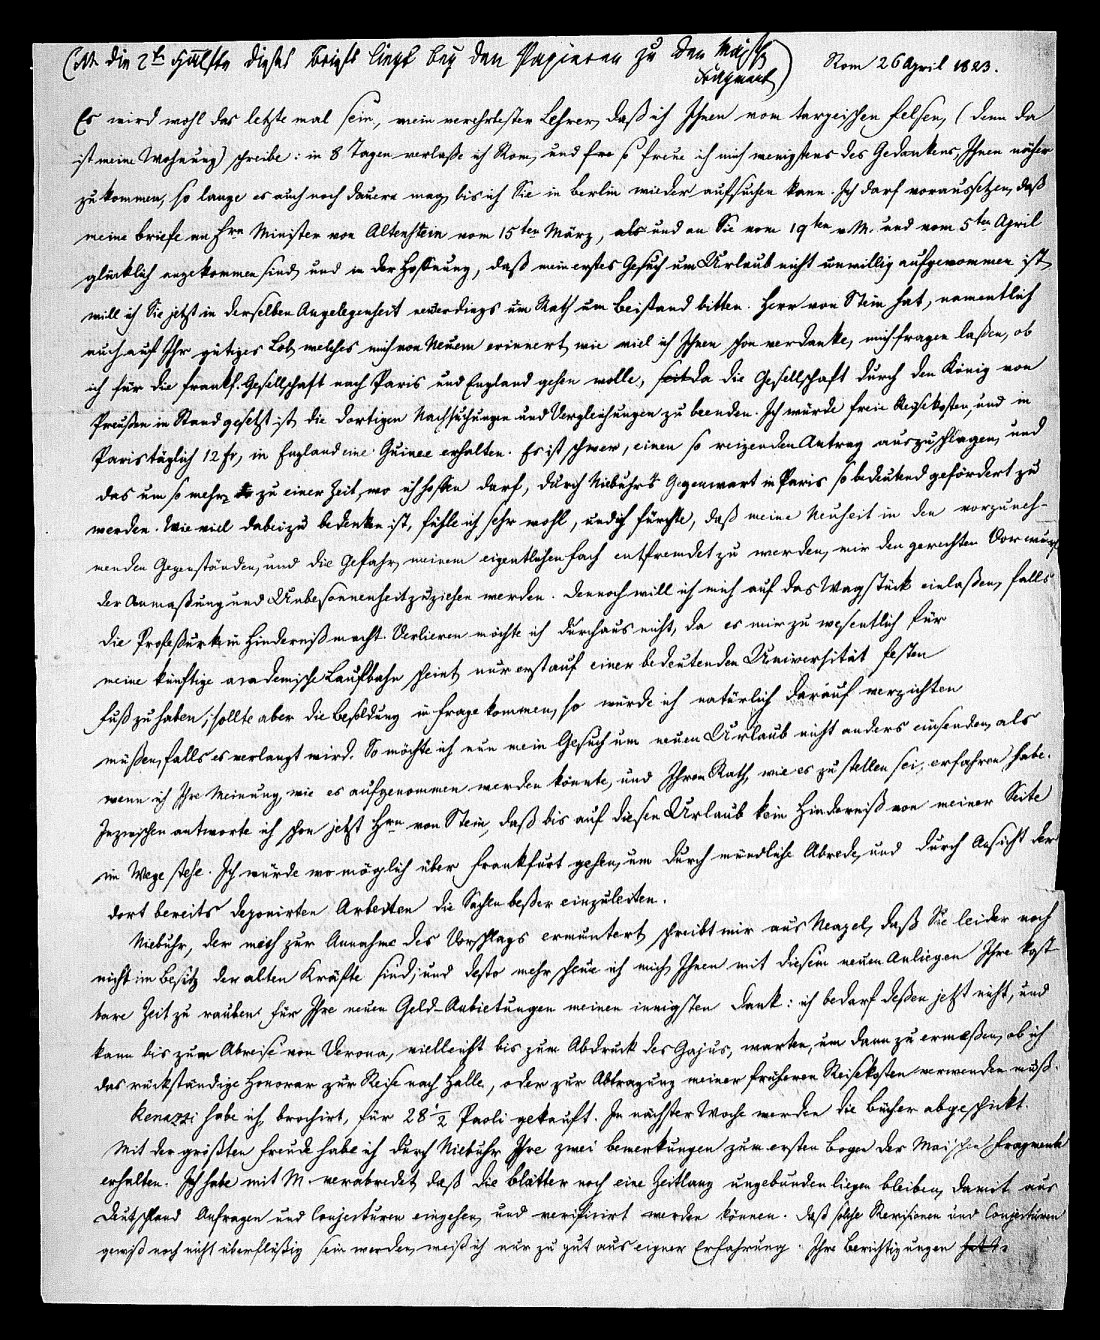 (NB die 2te Hälfte dieses Briefs liegt bey den Papieren zu den Maisch
Fragment)
Rom 26 April 1823.
Es wird wohl das letzte mal sein, mein verehrtester Lehrer, daß ich Ihnen vom tarpeischen Felsen, (denn da
ist meine Wohnung) schreibe: in 8 Tagen verlaße ich Rom, und fre so freue ich mich wenigstens des Gedankens, Ihnen näher
zu kommen, so lange es auch noch dauern mag, bis ich Sie in Berlin wieder aufsuchen kann. Ich darf voraussetzen, daß
meine Briefe an Hrn Minister von Altenstein vom 15ten März, als und an Sie vom 19ten v. M. und vom 5ten April
glücklich angekommen sind, und in der Hoffnung, daß mein erstes Gesuch um Urlaub nicht unwillig aufgenommen ist,
will ich Sie jetzt in derselben Angelegenheit neuerdings um Rath um Beistand bitten. Herr von Stein hat, namentlich
auch auf Ihr gütiges Lob, welches mich von Neuem erinnert, wie viel ich Ihnen schon verdanke, mich fragen laßen, ob
ich für die Frankf. Gesellschaft nach Paris und England gehen wolle, seit da die Gesellschaft durch den König von
Preußen in Stand gesetzt ist, die dortigen Nachsuchungen und Vergleichungen zu beenden. Ich würde freie Reisekosten, und in
Paris täglich 12 fr, in England eine Guinee erhalten. Es ist schwer, einen so reizenden Antrag auszuschlagen, und
das um so mehr zu einer Zeit, wo ich hoffen darf, durch Niebuhr's Gegenwart in Paris so bedeutend gefördert zu
werden. Wie viel dabei zu bedenken ist, fühle ich sehr wohl, und ich fürchte, daß meine Neuheit in den vorzuneh-
menden Gegenständen, und die Gefahr, meinem eigentlichen Fach entfremdet zu werden, mir den gerechten Vorwurf
der Anmaßung und Unbesonnenheit zuziehen werden. Dennoch will ich mich auf das Wagstück einlaßen, falls
die Profeßur kein Hinderniß macht. Verlieren möchte ich durchaus nicht, da es mir zu wesentlich für
meine künftige academische Laufbahn scheint, nur erst auf einer bedeutenden Universität festen
Fuß zu haben; sollte aber die Besoldung in Frage kommen, so würde ich natürlich darauf verzichten
müßen, falls es verlangt wird. So möchte ich nun mein Gesuch um neuen Urlaub nicht anders einsenden, als
wenn ich Ihre Meinung, wie es aufgenommen werden könnte, und Ihren Rath, wie es zu stellen sei, erfahren habe.
Inzwischen antworte ich schon jetzt Hrn von Stein, daß bis auf diesen Urlaub kein Hinderniß von meiner Seite
im Wege stehe. Ich würde wo möglich über Frankfurt gehen, um durch mündliche Abrede, und durch Ansicht der
dort bereits deponirten Arbeiten die Sachen beßer einzuleiten.
Niebuhr, der mich zur Annahme des Vorschlags ermuntert, schreibt mir aus Neapel, daß Sie leider noch
nicht im Besitz der alten Kräfte sind; und desto mehr scheue ich mich, Ihnen mit diesem neuen Anliegen Ihre kost-
bare Zeit zu rauben. Für Ihre neuen Geld-Anbietungen meinen innigsten Dank: ich bedarf deßen jetzt nicht, und
kann bis zur Abreise von Verona, vielleicht bis zum Abdruck des Gajus, warten, um dann zu ermeßen, ob ich
das rückständige Honorar zur Reise nach Halle, oder zur Abtragung meiner früheren Reisekosten verwenden muß.
Renazzi habe ich, brochirt, für 28 1/2 Paoli gekauft. In nächster Woche werden die Bücher abgeschickt.
Mit der größten Freude habe ich durch Niebuhr Ihre zwei Bemerkungen zum ersten Bogen der Maischen Fragmente
erhalten. Ich habe mit M. verabredet, daß die Blätter noch eine Zeitlang ungebunden liegen bleiben, damit aus
Deutschland Anfragen und Conjecturen eingehen, und verificirt werden können. Daß solche Revisionen und Conjecturen
gewiß noch nicht überflüßig sein werden, weiß ich nur zu gut aus eigner Erfahrung. Ihre Berichtigungen